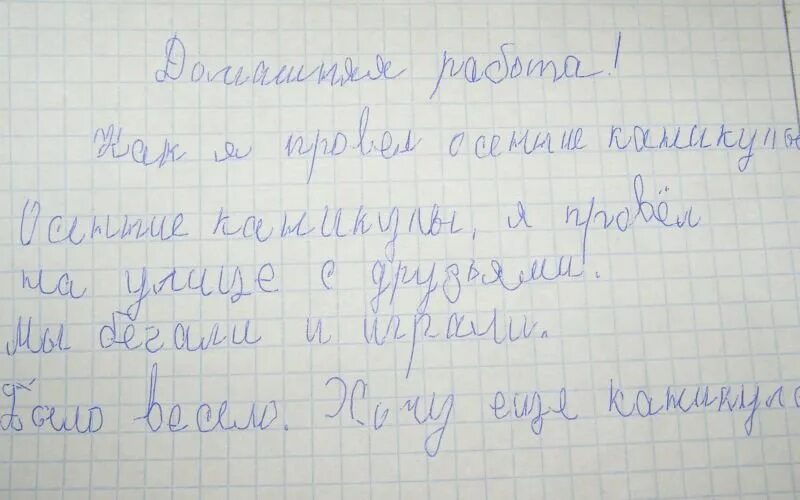 Домашняя работа!
Как я провел осенние каникулы
Осенние каникулы, я провёл
на улице с друзьями.
Мы бегали и играли.
Было весело. Хочу еще каникулы